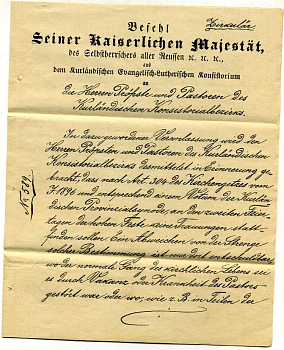 Zirkulär
Befehl
Seiner Kaiserlichen Majestät,
des Selbstherrschers aller Reussen ꝛc. ꝛc. ꝛc.
aus
dem Kurländischen Evangelisch-Lutherischen Konsistorium
an
die Herren Pröpste und Pastoren des
Kurländischen Konsistorialbezirks.
In dazu gewordener Veranlassung wird den
Herren Pröpsten und Pastoren des Kurländischen
Konsistorialbezirks desmittelst in Erinnerung ge-
bracht, dass nach Art. des Kirchengesetzes vom
J. 1896 und entsprechend einem Votum der Kurlän-
dischen Provinzialsynode, an den zweiten Feier-
tagen der hohen Feste keine Trauungen statt-
finden sollen. Ein Abweichen von der Strenge
solcher Bestimmung ist nur dort entschuldbar,
wo der normale Gang des kirchlichen Lebens, sei
es durch Vakanz oder Krankheit des Pastors
gestört war oder wo, wie z. B. in Teilen der